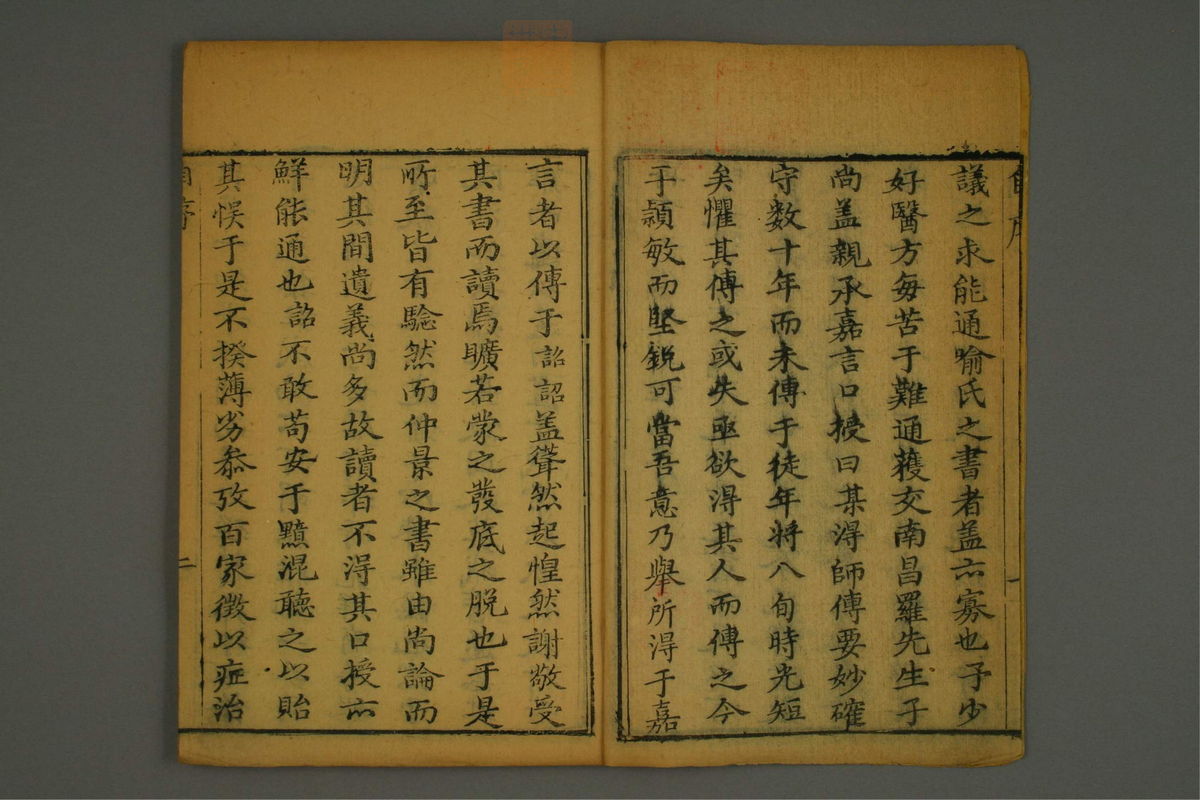 議之求能通喻氏之書者盖亦寡也予少
好醫方每苦于難通蓷交南昌羅先生子
尚盖親承嘉言口授曰某淂師傳要妙確
守数十年而未傳于徒年将八旬時光短
矣懼其傳之或失亟欲淂其人而傳之今
子頴敏而堅銳可當吾意乃舉所淂于嘉
言者以傳于詔詔盖聳然起惶然謝敬受
其書而讀焉曠若蒙之發底之脱也于是
所至皆有驗然而仲景之書雖由尚論而
明其間遺義尚多故讀者不淂其口授亦
鮮能通也詔不敢苟安于黯混聽之以貽
其悮于是不揆薄劣叅攷百家徵以症治
自序
二